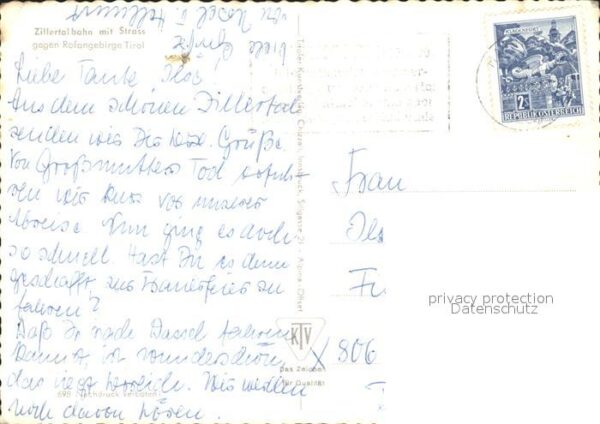 Zillertalbahn mit Strass
gegen Rofangebirge Tirol
Liebe Tante Ilse!
Aus dem schönen Zillertal
senden wir Dir Grüße.
Von Großmutters Tod erfuh-
ren wir kurz vor unserer
Abreise. Nun ging es doch
so schnell. Hast Du es denn
geschafft, zur Trauerfeier zu
fahren?
Daß Ihr nach Dassel fahren
könnt, ist wunderschön,
das liegt herrlich. Wir werden
noch davon hören.
viele Grüße
von
698 Nachdruck verboten
Tiroler Kunstverlag Chizzali, Innsbruck
KTV
Das Zeichen
für Qualität
KLAGENFURT
2
REPUBLIK ÖSTERREICH
Frau
Ils
X 806
privacy protection
Datenschutz